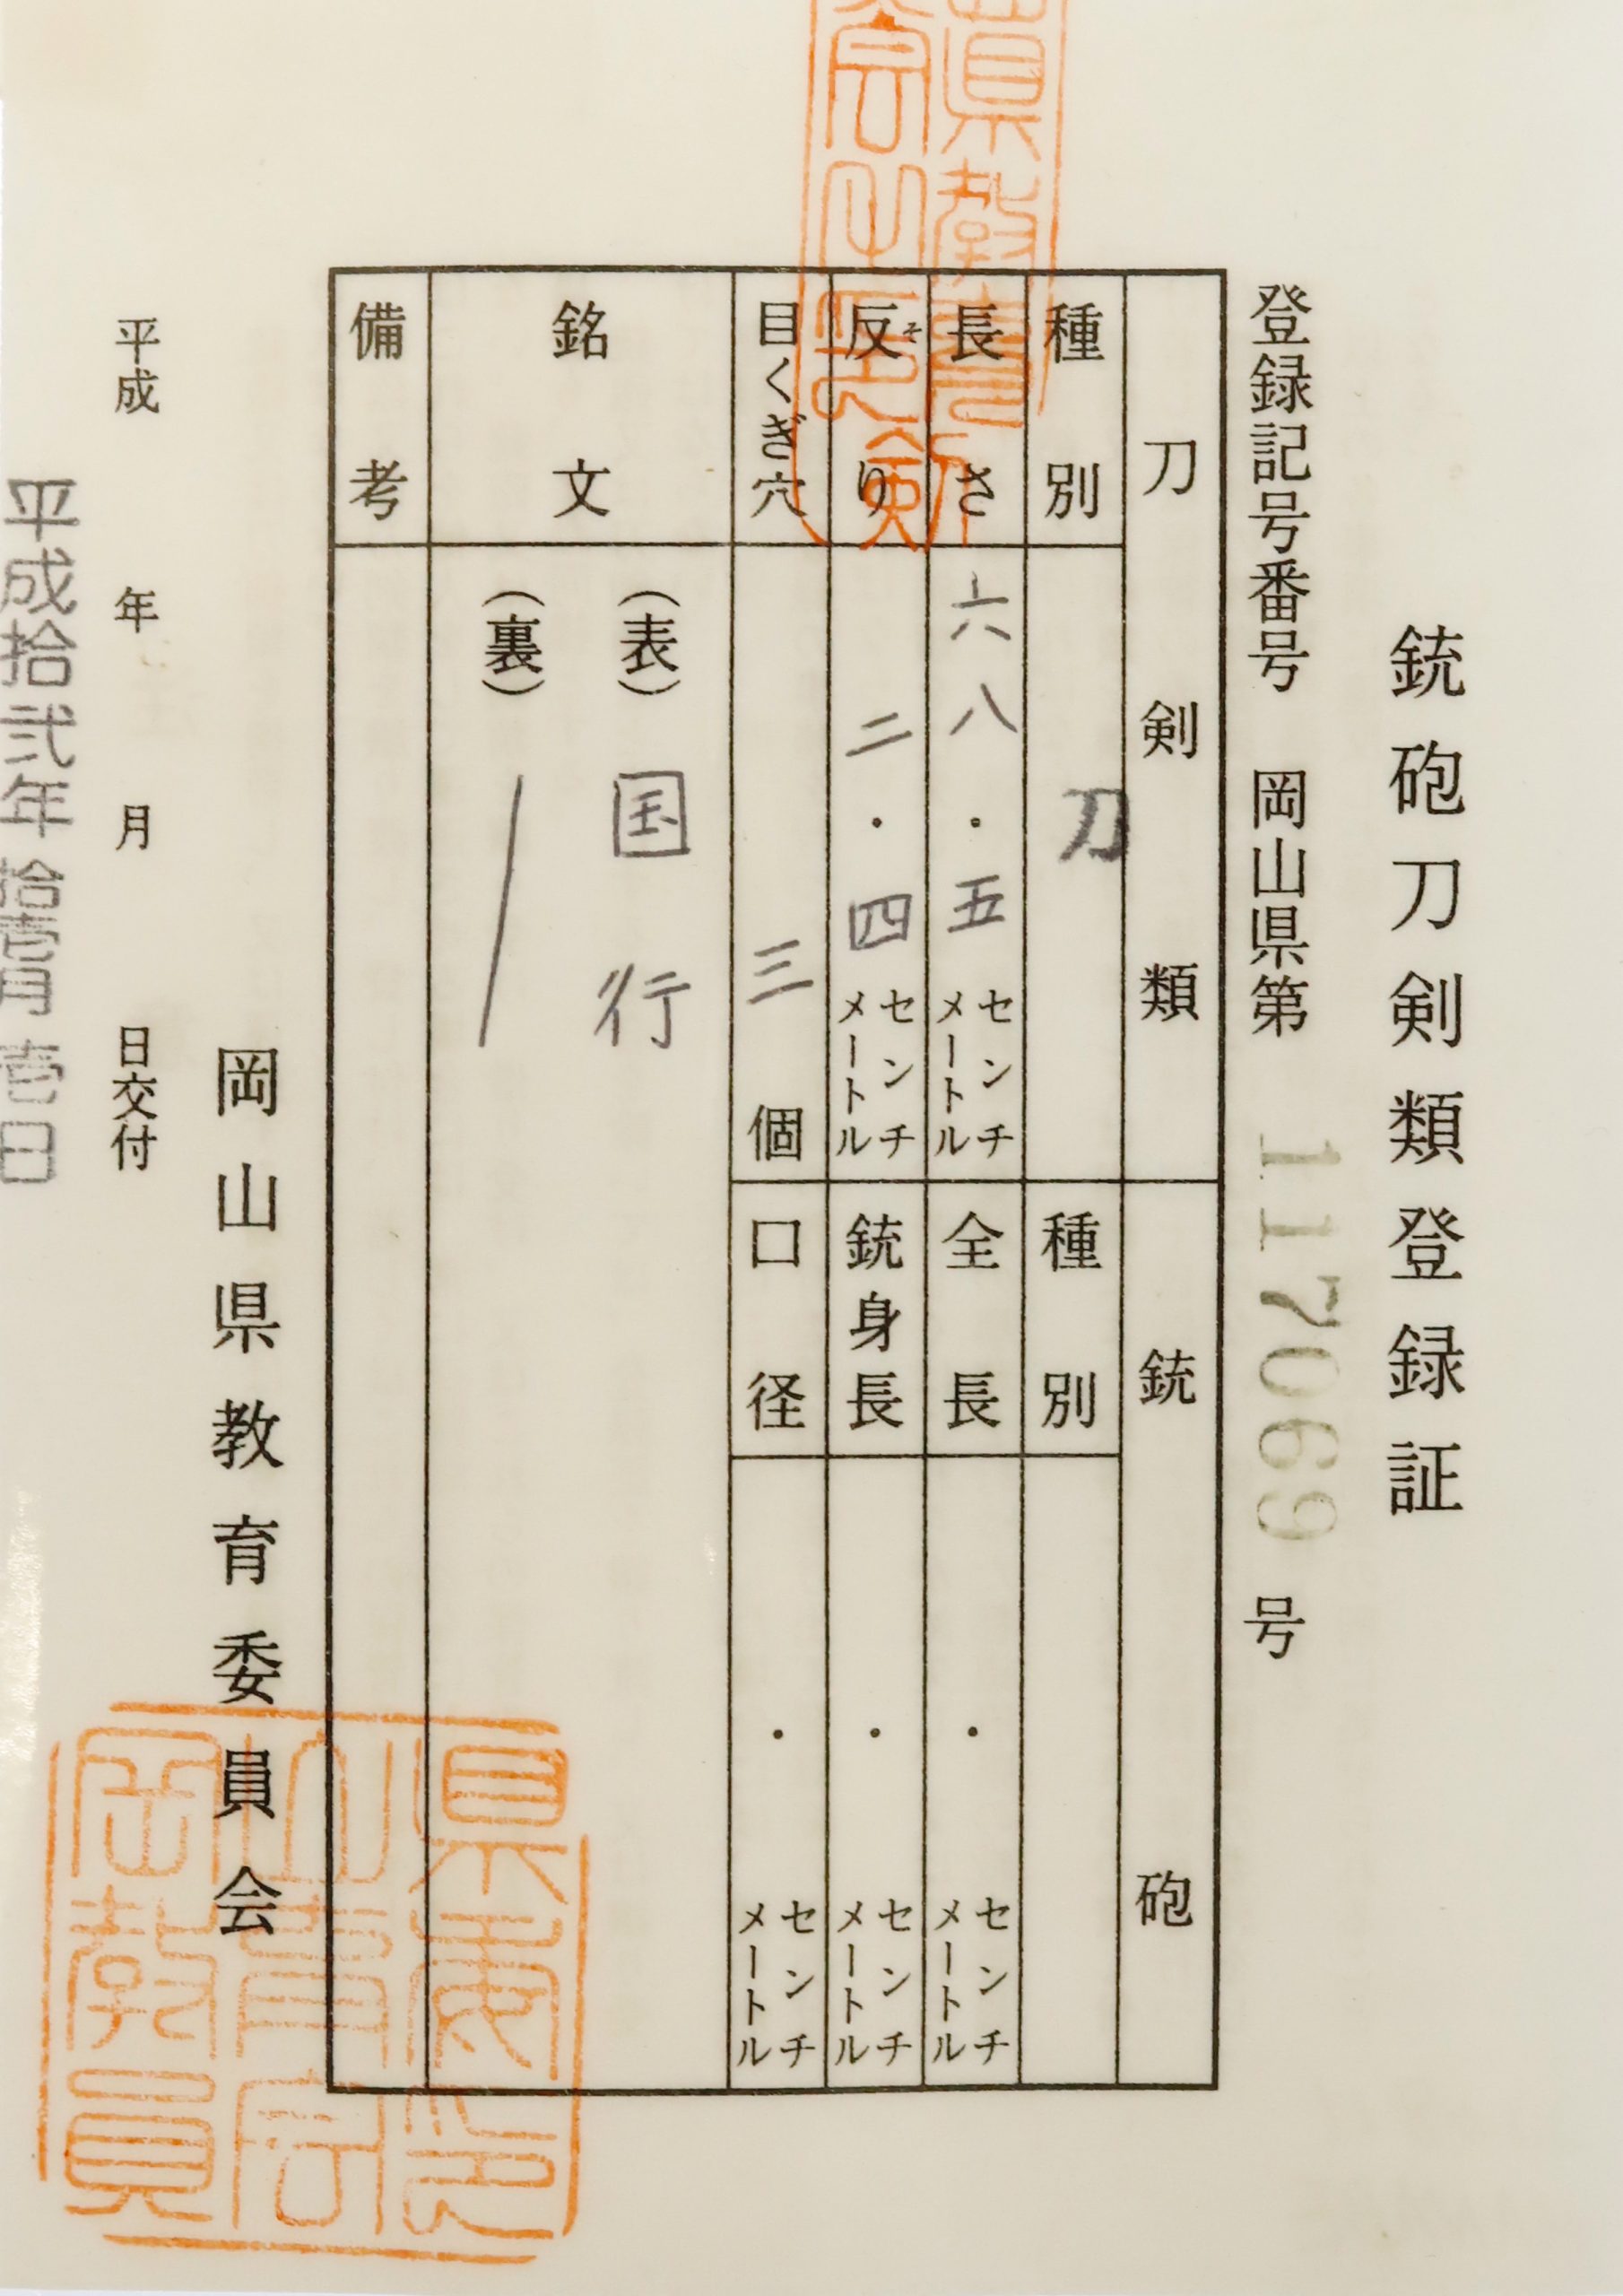 銃砲刀剣類登録証
登録記号番号 岡山県第 117069 号
刀剣類
銃砲
種別 刀
長さ 六八・五 センチメートル
反り 二・四 センチメートル
そ
目くぎ穴 三 個
種別
全長 ・ センチメートル
銃身長 ・ センチメートル
口径 ・ センチメートル
銘文 (表) 国行
(裏)
備考
岡山県教育委員会
平成 年 月 日交付
平成拾弐年拾壱月壱日